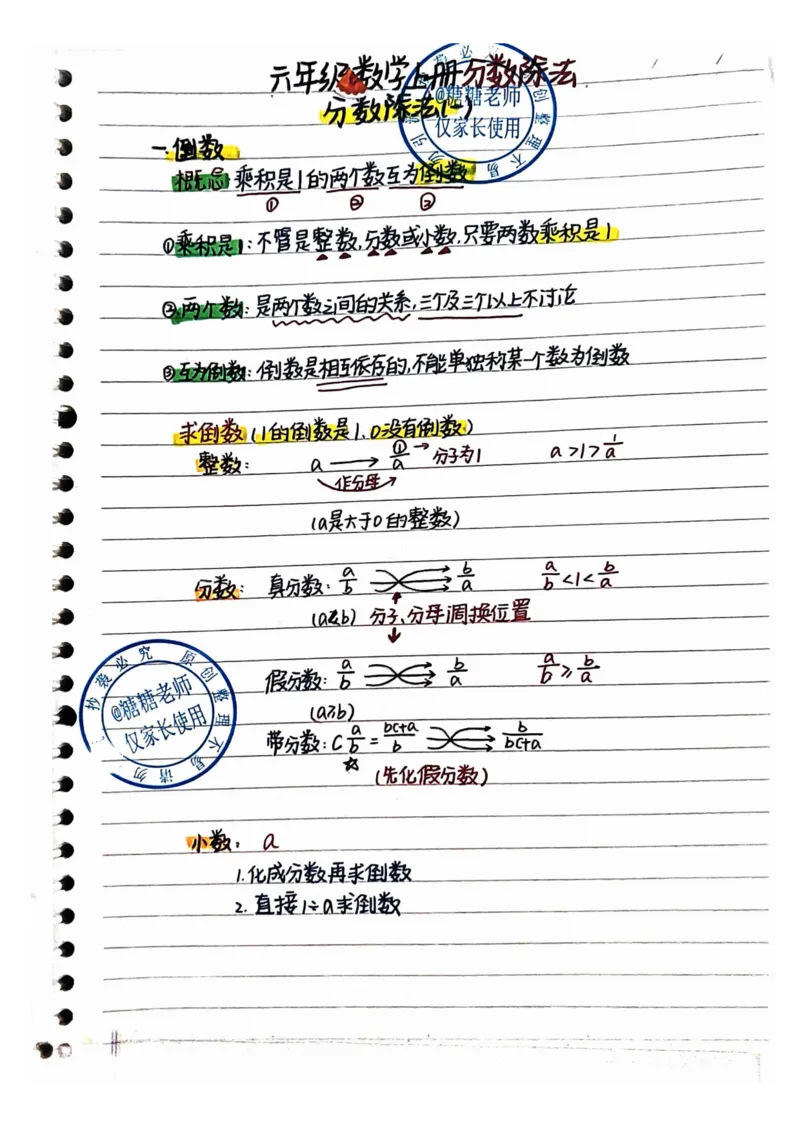 六年级数学上册分数除法
分数除法(一)
@糖糖老师
仅家长使用
一.倒数
概念:乘积是1的两个数互为倒数
① ② ③
①乘积是1:不管是整数,分数或小数,只要两数乘积是1
②两个数:是两个数之间的关系,三个及三个以上不讨论
③互为倒数:倒数是相互依存的,不能单独称某一个数为倒数
求倒数(1的倒数是1,0没有倒数)
整数: a → ①/a → 分子为1 a>1>1/a
作分母
(a是大于0的整数)
分数: 真分数: a/b b/a a/b<1<b/a
(a<b) 分子、分母调换位置
假分数: a/b b/a a/b≥b/a
(a≥b)
带分数: C a/b = bc+a/b b/bc+a
☆
(先化假分数)
抄袭必究 原创整理不易 请勿
@糖糖老师
仅家长使用
小数: a
1.化成分数再求倒数
2.直接1÷a求倒数